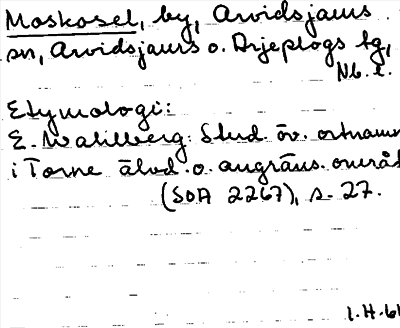 Moskosel, by, Arvidsjaurs
sn, Arvidsjaurs o. Arjeplogs tg,
Nb. l.
Etymologi:
E. Wahlberg: Stud. öv. ortnamn
i Torne älvd. o. angräns. områd
(SOA 2267), s. 27.
I.H. 61